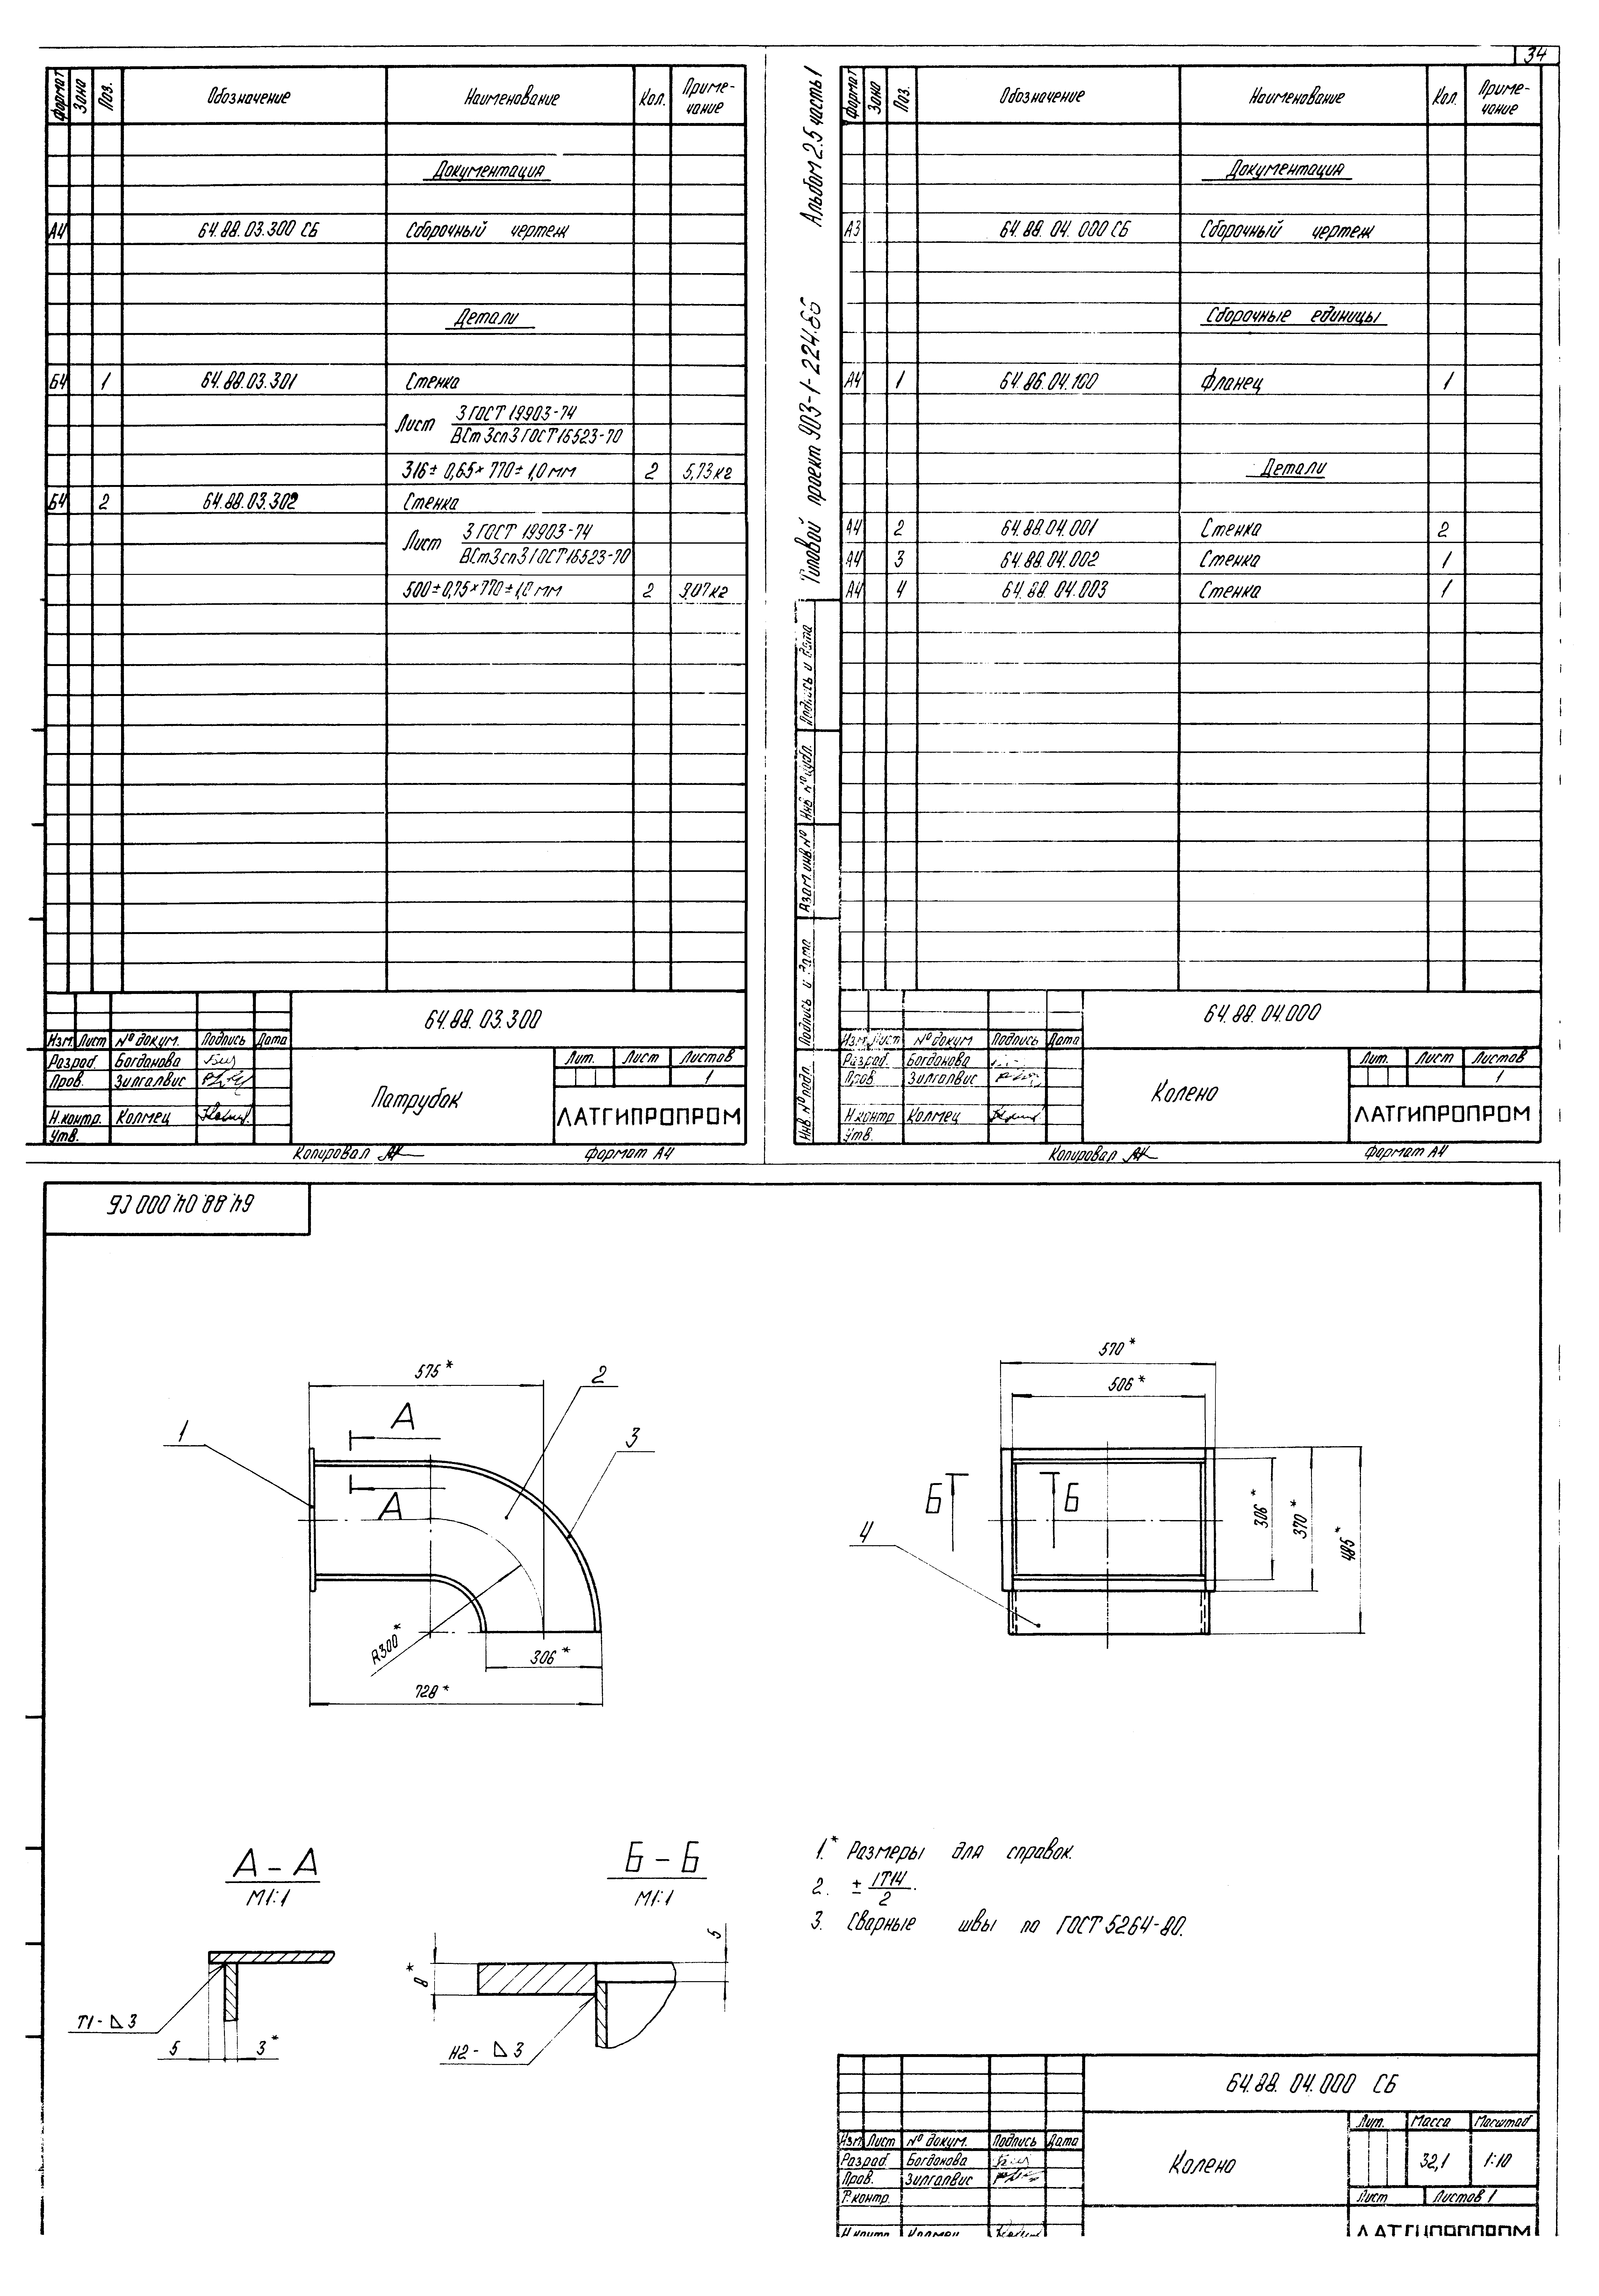 34
Формат Зона Поз. Обозначение Наименование Кол. Приме-
чание
Документация
А4 64.88.03.300 СБ Сборочный чертеж
Детали
Б4 1 64.88.03.301 Стенка
Лист 3 ГОСТ 19903-74
ВСт3сп3 ГОСТ16523-70
316± 0,65× 770± 1,0 мм 2 5,73кг
Б4 2 64.88.03.302 Стенка
Лист 3 ГОСТ 19903-74
ВСт3сп3 ГОСТ16523-70
500±0,75×770±1,0 мм 2 9,07кг
64.88.03.300
Изм. Лист № докум. Подпись Дата
Разраб. Богданова
Пров. Зилгалвис
Н.контр. Колмец
Утв.
Патрубок
Лит. Лист Листов
1
ЛАТГИПРОПРОМ
Копировал
Формат А4
Альбом 2.5 часть 1
Типовой проект 903-1-224.86
Подпись и дата
Инв. № дубл.
Взам. инв. №
Подпись и дата
Инв. № подл.
Формат Зона Поз. Обозначение Наименование Кол. Приме-
чание
Документация
А3 64.88.04.000 СБ Сборочный чертеж
Сборочные единицы
А4 1 64.86.04.100 Фланец 1
Детали
А4 2 64.88.04.001 Стенка 2
А4 3 64.88.04.002 Стенка 1
А4 4 64.88.04.003 Стенка 1
64.88.04.000
Изм. Лист № докум Подпись Дата
Разраб. Богданова
Пров Зилгалвис
Н.контр Колмец
Утв.
Колено
Лит. Лист Листов
1
ЛАТГИПРОПРОМ
Копировал
Формат А4
64.88.04.000 СБ
575*
2
А
1
3
А
R300*
306*
728*
570*
506*
Б
Б
4
306*
370*
485*
А-А
М1:1
Т1-⊿3
5
3*
Б-Б
М1:1
8*
5
Н2-⊿3
1.* Размеры для справок.
2. ± IT14/2.
3. Сварные швы по ГОСТ 5264-80.
64.88.04.000 СБ
Изм Лист № докум. Подпись Дата
Разраб. Богданова
Пров. Зилгалвис
Т.контр.
Н.контр. Колмец
Колено
Лит. Масса Масштаб
32,1 1:10
Лист Листов 1
ЛАТГИПРОПРОМ